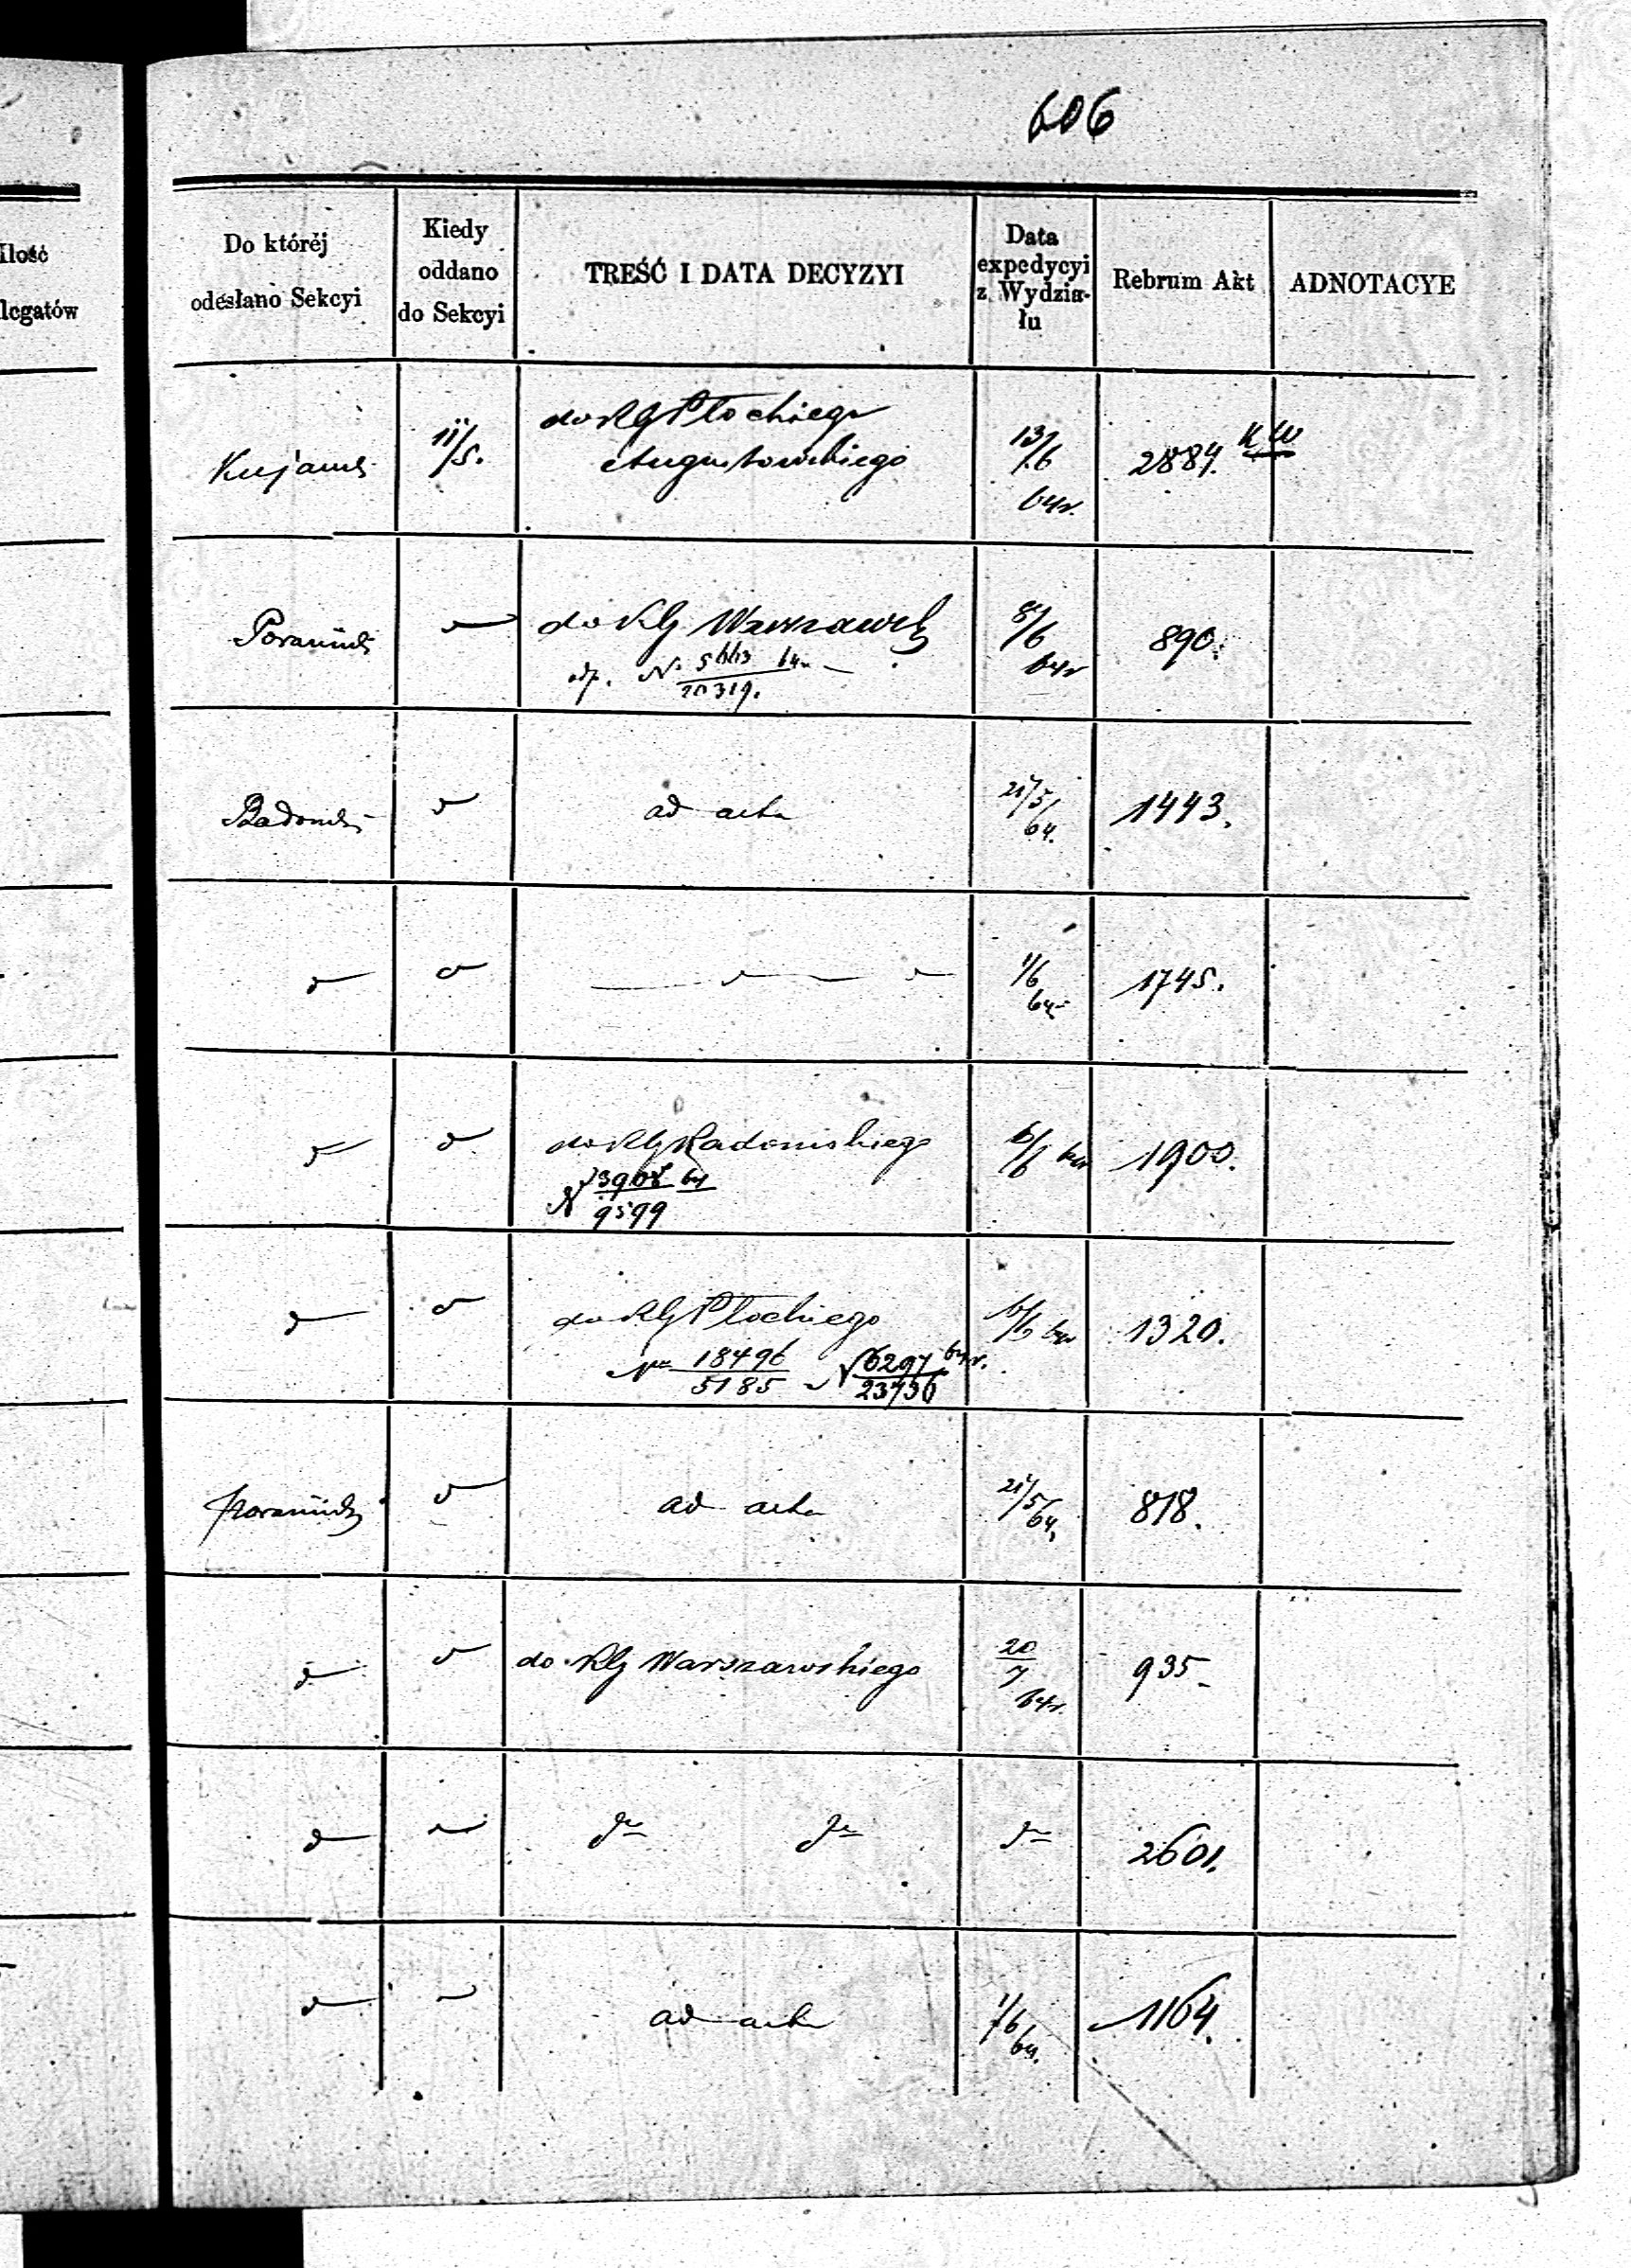 606
Ilość
legatów
Do któréj
odesłano Sekcyi
Kiedy
oddano
do Sekcyi
TREŚĆ I DATA DECYZYI
Data
expedycyi
z Wydzia-
łu
Rebrum Akt
ADNOTACYE
11/5.
do RG Płockiego
Augustowskiego
13/6
64r.
2884. KW
do RG Warszawsk
N 20319.
8/6
64r
890.
Radomsk
ad acta
21/5
64.
1443.
1/6
64
1745.
do RG Radomskiego
N 3908 64
9599
6/6 64r
1900.
do RG Płockiego
No 18496
5185
N 6297 64r.
23736
6/6 64r
1320.
ad acta
21/5
64.
818.
do RG Warszawskiego
20
7
64r.
935
do
do
do
2601.
ad acta
1/6
64.
1164.